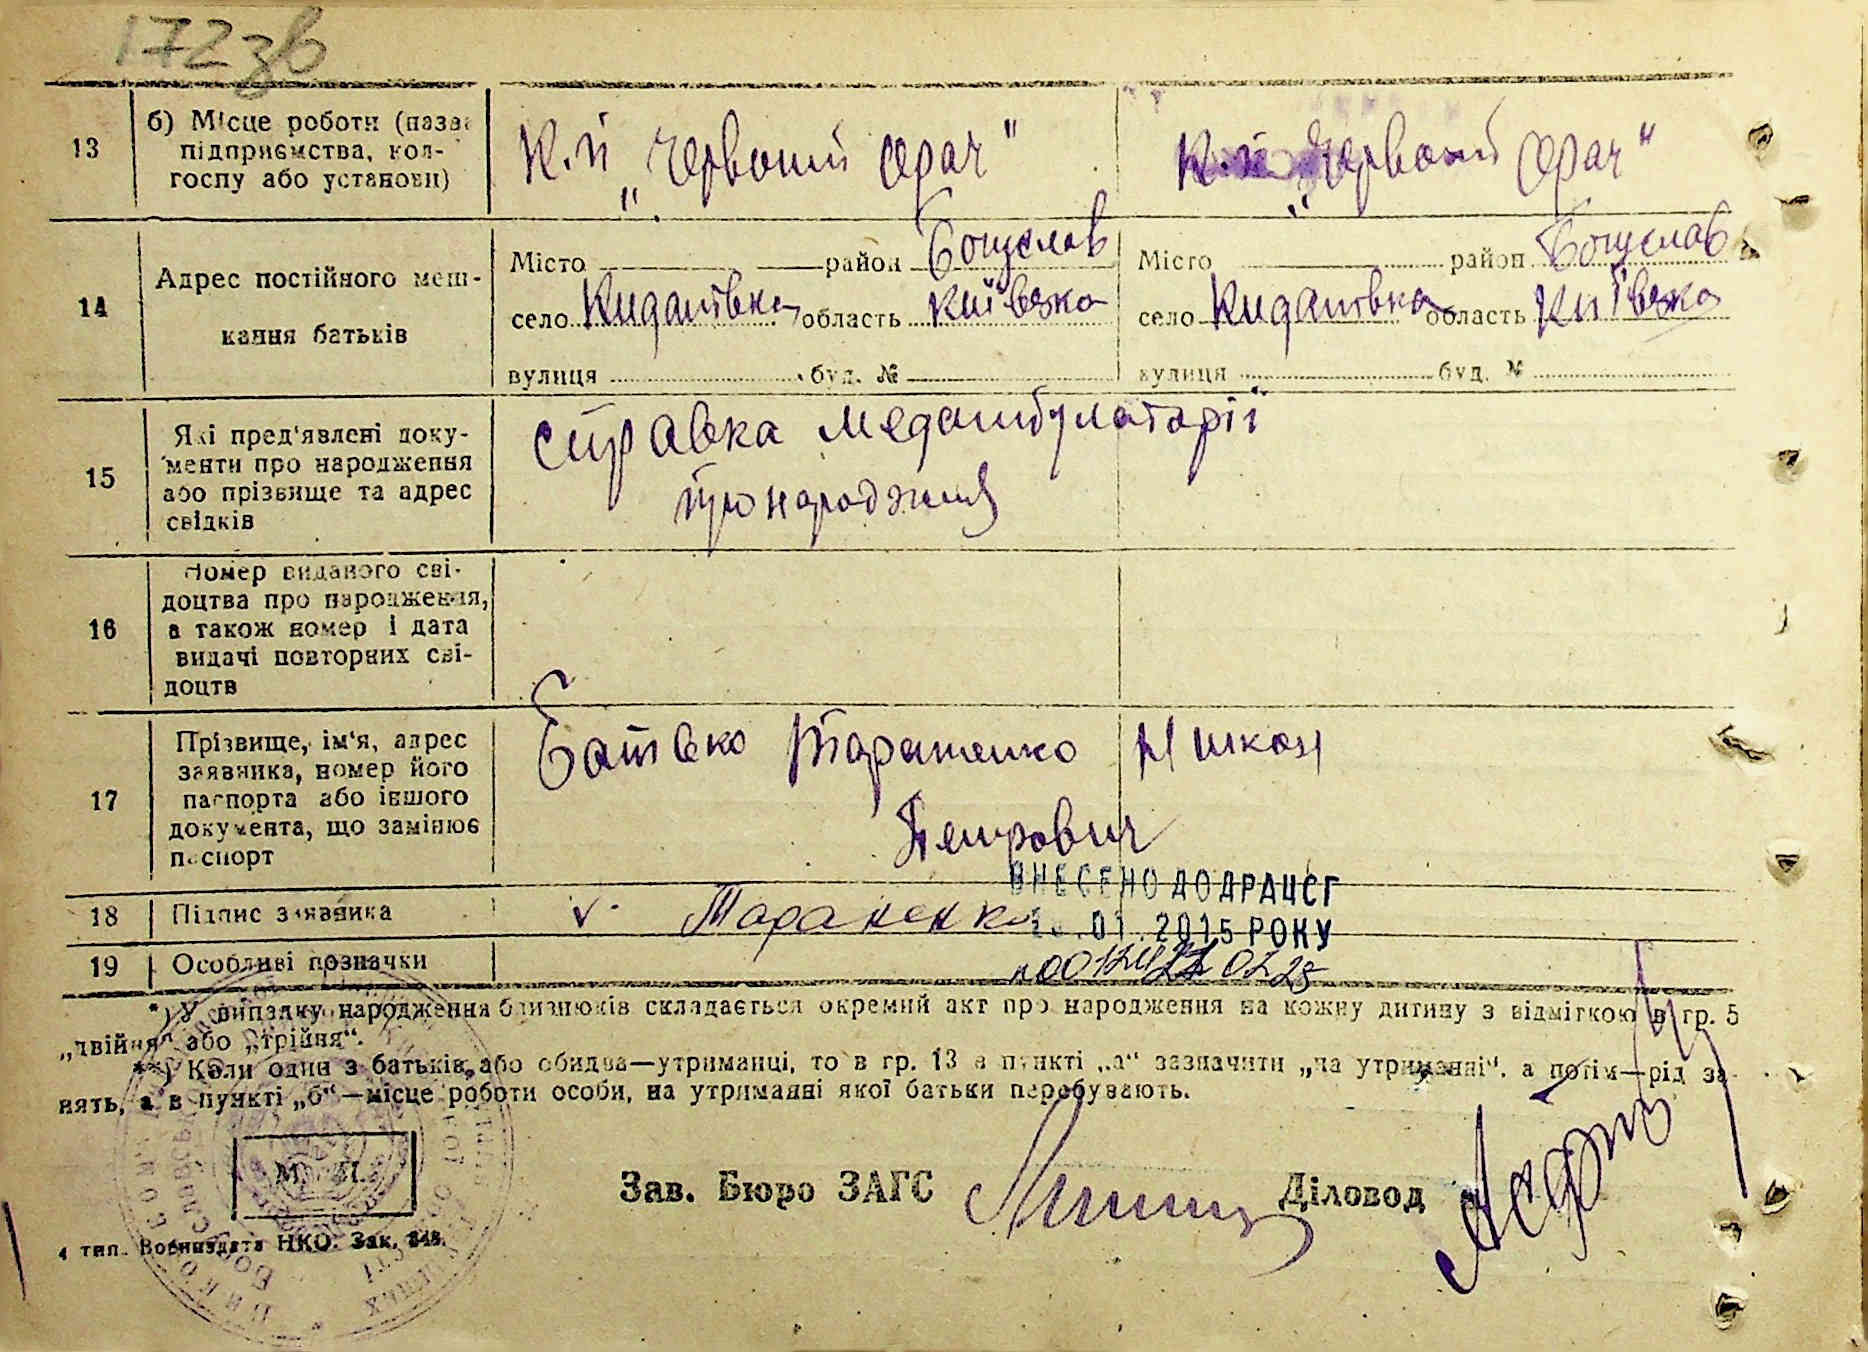 172 зв
13
б) Місце роботи (назва
підприємства, кол-
госпу або установи)
К.п „Червоний орач"
К.п „Червоний орач"
14
Адрес постійного меш-
кання батьків
Місто район Богуслав
село Кидашівка область Київська
вулиця буд. №
Місто район Богуслав
село Кидашівка область Київська
вулиця буд. №
15
Які пред'явлені доку-
менти про народження
або прізвище та адрес
свідків
справка медамбулаторії
про народження
16
Номер виданого сві-
доцтва про народження,
а також номер і дата
видачі повторних сві-
доцтв
17
Прізвище, ім'я, адрес
заявника, номер його
паспорта або іншого
документа, що замінює
паспорт
Батько Тараненко Никон
Петрович
18
Підпис заявника
v Тараненко
ВНЕСЕНО ДО ДРАЦСГ
.01.2015 РОКУ
19
Особливі позначки
*) У випадку народження близнюків складається окремий акт про народження на кожну дитину з відміткою в гр. 5
„двійня" або „трійня".
**) Коли один з батьків, або обидва—утриманці, то в гр. 13 в пункті „а" зазначити „на утриманні", а потім—рід за-
нять, а в пункті „б"—місце роботи особи, на утриманні якої батьки перебувають.
М. П.
Зав. Бюро ЗАГС
Діловод
4 тип. Воениздата НКО. Зак. 348.